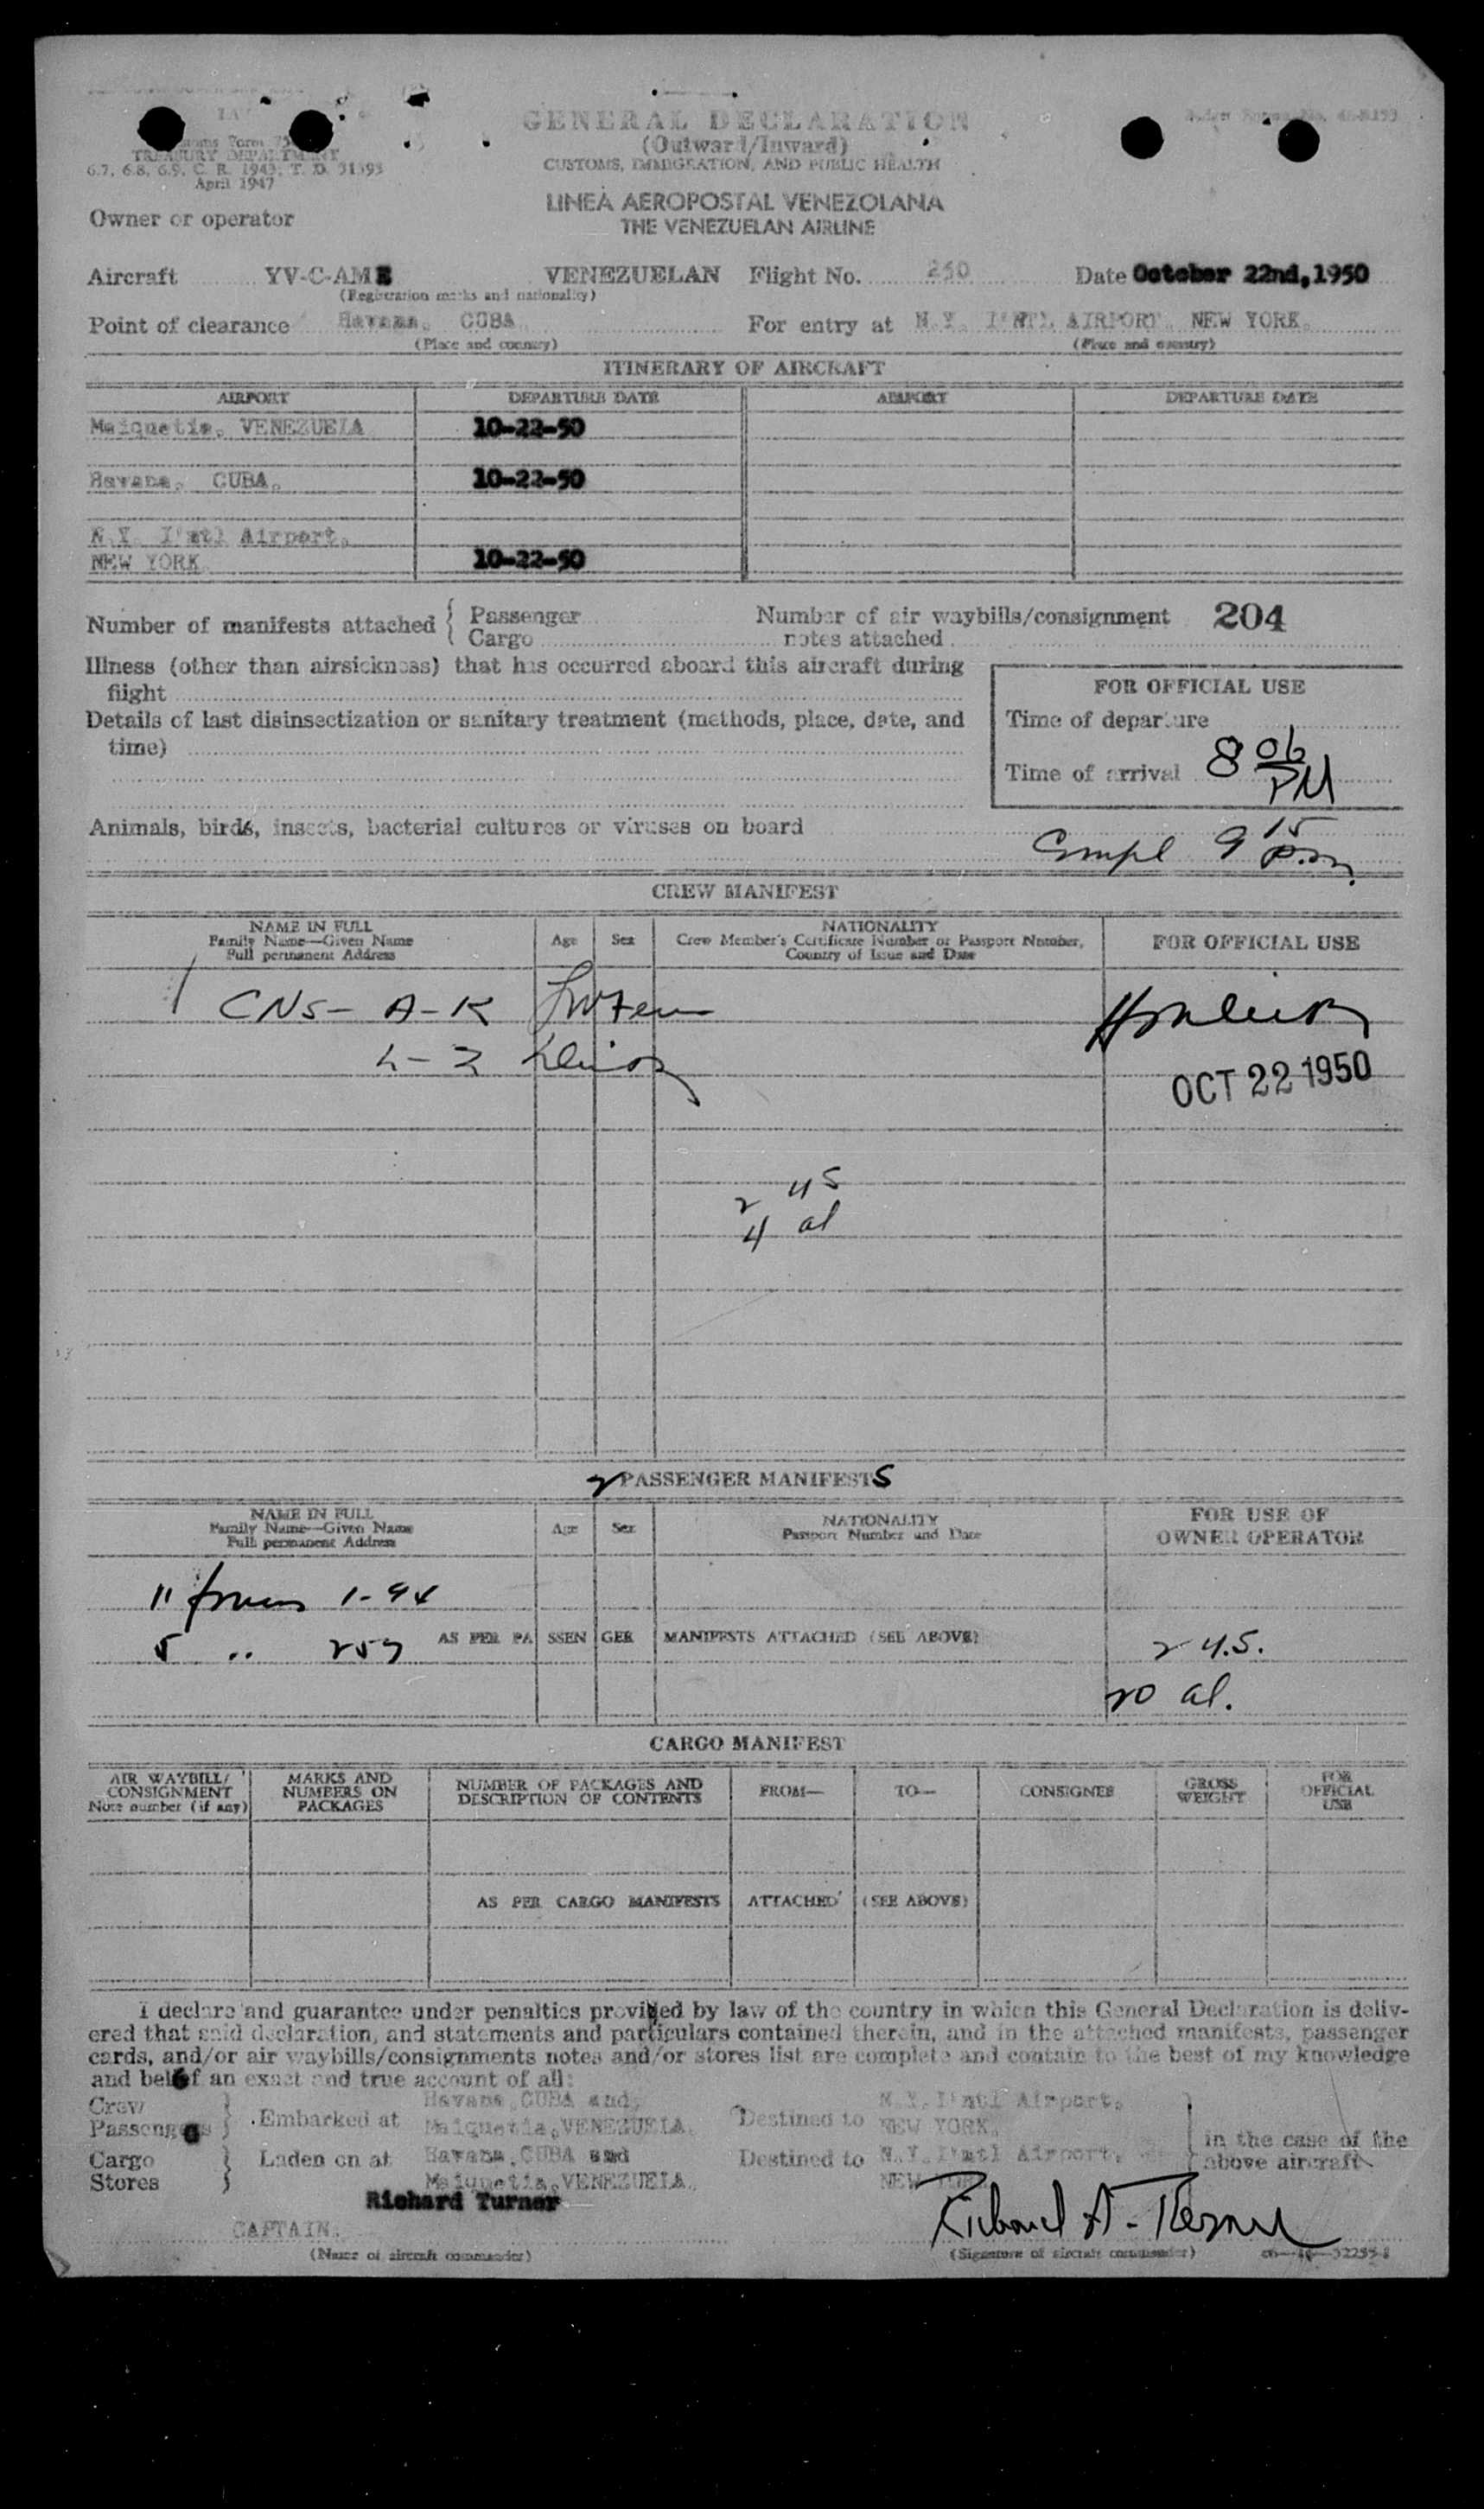 GENERAL DECLARATION
(Outward/Inward)
CUSTOMS, IMMIGRATION, AND PUBLIC HEALTH
TREASURY DEPARTMENT
6.7, 6.8, 6.9, C. R. 1943; T. D. 51595
April 1947
LINEA AEROPOSTAL VENEZOLANA
THE VENEZUELAN AIRLINE
Owner or operator
Aircraft YV-C-AME VENEZUELAN Flight No. 250 Date October 22nd, 1950
(Registration marks and nationality)
Point of clearance Havana, CUBA For entry at N.Y. I'NTL AIRPORT, NEW YORK.
(Place and country) (Place and country)
ITINERARY OF AIRCRAFT
AIRPORT DEPARTURE DATE AIRPORT DEPARTURE DATE
Maiquetia, VENEZUELA 10-22-50
Havana, CUBA. 10-22-50
N.Y. I'ntl Airport,
NEW YORK 10-22-50
Number of manifests attached { Passenger
Cargo
Number of air waybills/consignment 204
notes attached
Illness (other than airsickness) that has occurred aboard this aircraft during
flight
Details of last disinsectization or sanitary treatment (methods, place, date, and
time)
FOR OFFICIAL USE
Time of departure
Time of arrival 8 06 PM
Animals, birds, insects, bacterial cultures or viruses on board
Compl 9 15 p.m.
CREW MANIFEST
NAME IN FULL
Family Name—Given Name
Full permanent Address
Age Sex
NATIONALITY
Crew Member's Certificate Number or Passport Number,
Country of Issue and Date
FOR OFFICIAL USE
CNS- A-K
L-Z
OCT 22 1950
2 US
4 al
2 PASSENGER MANIFESTS
NAME IN FULL
Family Name—Given Name
Full permanent Address
Age Sex
NATIONALITY
Passport Number and Date
FOR USE OF
OWNER OPERATOR
11 forms 1-94
5 " 257 AS PER PASSENGER MANIFESTS ATTACHED (SEE ABOVE) 2 U.S.
20 al.
CARGO MANIFEST
AIR WAYBILL/
CONSIGNMENT
Note number (if any)
MARKS AND
NUMBERS ON
PACKAGES
NUMBER OF PACKAGES AND
DESCRIPTION OF CONTENTS
FROM— TO— CONSIGNEE
GROSS
WEIGHT
FOR
OFFICIAL
USE
AS PER CARGO MANIFESTS ATTACHED (SEE ABOVE)
I declare and guarantee under penalties provided by law of the country in which this General Declaration is deliv-
ered that said declaration, and statements and particulars contained therein, and in the attached manifests, passenger
cards, and/or air waybills/consignments notes and/or stores list are complete and contain to the best of my knowledge
and belief an exact and true account of all:
Crew
Passengers
} Embarked at Havana, CUBA and,
Maiquetia, VENEZUELA.
Destined to N.Y. I'ntl Airport,
NEW YORK.
Cargo
Stores
} Laden on at Havana, CUBA and
Maiquetia, VENEZUELA.
Destined to N.Y. I'ntl Airport,
NEW YORK
in the case of the
above aircraft
Richard Turner
CAPTAIN.
(Name of aircraft commander)
Richard A. Turner
(Signature of aircraft commander)